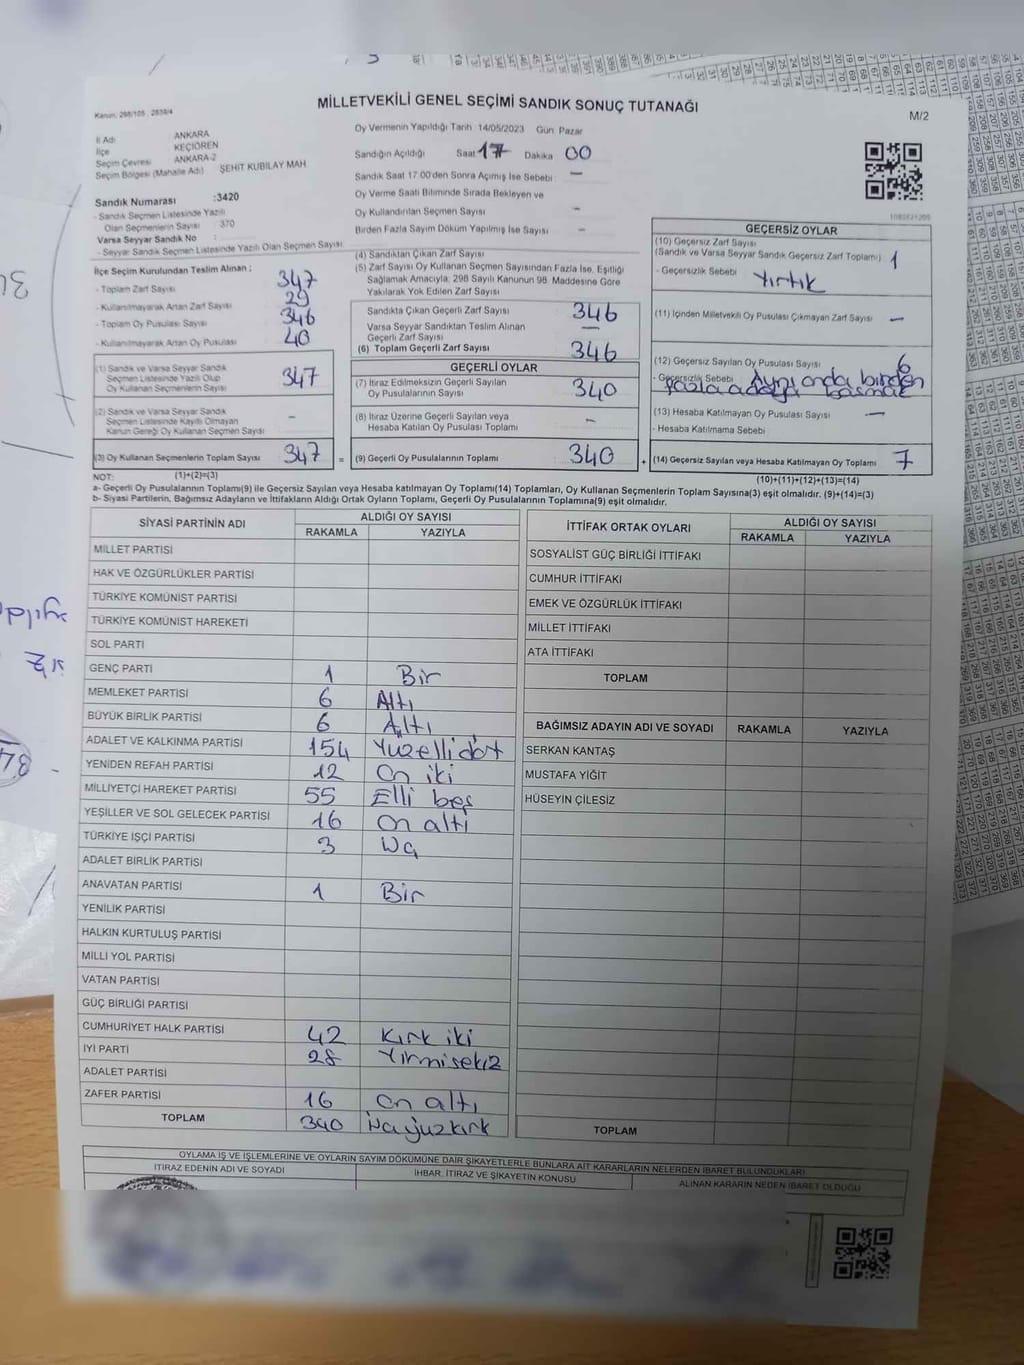 MİLLETVEKİLİ GENEL SEÇİMİ SANDIK SONUÇ TUTANAĞI
M/2
İl Adı ANKARA
İlçe KEÇİÖREN
Seçim Çevresi ANKARA-2
Seçim Bölgesi (Mahalle Adı) ŞEHİT KUBİLAY MAH
Sandık Numarası :3420
- Sandık Seçmen Listesinde Yazılı
Olan Seçmenlerin Sayısı : 370
Varsa Seyyar Sandık No :
- Seyyar Sandık Seçmen Listesinde Yazılı Olan Seçmen Sayısı:
Oy Vermenin Yapıldığı Tarih 14/05/2023 Gün: Pazar
Sandığın Açıldığı Saat 17 Dakika 00
Sandık Saat 17.00'den Sonra Açımış İse Sebebi : -
Oy Verme Saati Bitiminde Sırada Bekleyen ve
Oy Kullandırılan Seçmen Sayısı -
Birden Fazla Sayım Döküm Yapılmış İse Sayısı -
İlçe Seçim Kurulundan Teslim Alınan ;
- Toplam Zarf Sayısı 347
- Kullanılmayarak Artan Zarf Sayısı 29
- Toplam Oy Pusulası Sayısı 346
- Kullanılmayarak Artan Oy Pusulası 40
(1) Sandık ve Varsa Seyyar Sandık
Seçmen Listesinde Yazılı Olup
Oy Kullanan Seçmenlerin Sayısı 347
(2) Sandık ve Varsa Seyyar Sandık
Seçmen Listesinde Kayıtlı Olmayan
Kanun Gereği Oy Kullanan Seçmen Sayısı -
(3) Oy Kullanan Seçmenlerin Toplam Sayısı 347 =
(1)+(2)=(3)
(4) Sandıktan Çıkan Zarf Sayısı
(5) Zarf Sayısı Oy Kullanan Seçmen Sayısından Fazla İse, Eşitliği
Sağlamak Amacıyla; 298 Sayılı Kanunun 98. Maddesine Göre
Yakılarak Yok Edilen Zarf Sayısı
Sandıkta Çıkan Geçerli Zarf Sayısı 346
Varsa Seyyar Sandıktan Teslim Alınan
Geçerli Zarf Sayısı -
(6) Toplam Geçerli Zarf Sayısı 346
GEÇERLİ OYLAR
(7) İtiraz Edilmeksizin Geçerli Sayılan
Oy Pusulalarının Sayısı 340
(8) İtiraz Üzerine Geçerli Sayılan veya
Hesaba Katılan Oy Pusulası Toplamı -
(9) Geçerli Oy Pusulalarının Toplamı 340 +
GEÇERSİZ OYLAR
(10) Geçersiz Zarf Sayısı
(Sandık ve Varsa Seyyar Sandık Geçersiz Zarf Toplamı) 1
- Geçersizlik Sebebi Yırtık
(11) İçinden Milletvekili Oy Pusulası Çıkmayan Zarf Sayısı -
(12) Geçersiz Sayılan Oy Pusulası Sayısı 6
- Geçersizlik Sebebi Aynı anda birden
fazla adaya basmak
(13) Hesaba Katılmayan Oy Pusulası Sayısı -
- Hesaba Katılmama Sebebi
(14) Geçersiz Sayılan veya Hesaba Katılmayan Oy Toplamı 7
(10)+(11)+(12)+(13)=(14)
NOT:
a- Geçerli Oy Pusulalarının Toplamı(9) ile Geçersiz Sayılan veya Hesaba katılmayan Oy Toplamı(14) Toplamları, Oy Kullanan Seçmenlerin Toplam Sayısına(3) eşit olmalıdır. (9)+(14)=(3)
b- Siyasi Partilerin, Bağımsız Adayların ve İttifakların Aldığı Ortak Oyların Toplamı, Geçerli Oy Pusulalarının Toplamına(9) eşit olmalıdır.
SİYASİ PARTİNİN ADI ALDIĞI OY SAYISI
RAKAMLA YAZIYLA
MİLLET PARTİSİ
HAK VE ÖZGÜRLÜKLER PARTİSİ
TÜRKİYE KOMÜNİST PARTİSİ
TÜRKİYE KOMÜNİST HAREKETİ
SOL PARTİ
GENÇ PARTİ 1 Bir
MEMLEKET PARTİSİ 6 Altı
BÜYÜK BİRLİK PARTİSİ 6 Altı
ADALET VE KALKINMA PARTİSİ 154 Yüzellidört
YENİDEN REFAH PARTİSİ 12 On iki
MİLLİYETÇİ HAREKET PARTİSİ 55 Elli beş
YEŞİLLER VE SOL GELECEK PARTİSİ 16 On altı
TÜRKİYE İŞÇİ PARTİSİ 3 Üç
ADALET BİRLİK PARTİSİ
ANAVATAN PARTİSİ 1 Bir
YENİLİK PARTİSİ
HALKIN KURTULUŞ PARTİSİ
MİLLİ YOL PARTİSİ
VATAN PARTİSİ
GÜÇ BİRLİĞİ PARTİSİ
CUMHURİYET HALK PARTİSİ 42 Kırk iki
İYİ PARTİ 28 Yirmisekiz
ADALET PARTİSİ
ZAFER PARTİSİ 16 On altı
TOPLAM 340 Üçyüzkırk
İTTİFAK ORTAK OYLARI ALDIĞI OY SAYISI
RAKAMLA YAZIYLA
SOSYALİST GÜÇ BİRLİĞİ İTTİFAKI
CUMHUR İTTİFAKI
EMEK VE ÖZGÜRLÜK İTTİFAKI
MİLLET İTTİFAKI
ATA İTTİFAKI
TOPLAM
BAĞIMSIZ ADAYIN ADI VE SOYADI RAKAMLA YAZIYLA
SERKAN KANTAŞ
MUSTAFA YİĞİT
HÜSEYİN ÇİLESİZ
TOPLAM
OYLAMA İŞ VE İŞLEMLERİNE VE OYLARIN SAYIM DÖKÜMÜNE DAİR ŞİKAYETLERLE BUNLARA AİT KARARLARIN NELERDEN İBARET BULUNDUKLARI
İTİRAZ EDENİN ADI VE SOYADI
İHBAR, İTİRAZ VE ŞİKAYETİN KONUSU
ALINAN KARARIN NEDEN İBARET OLDUĞU